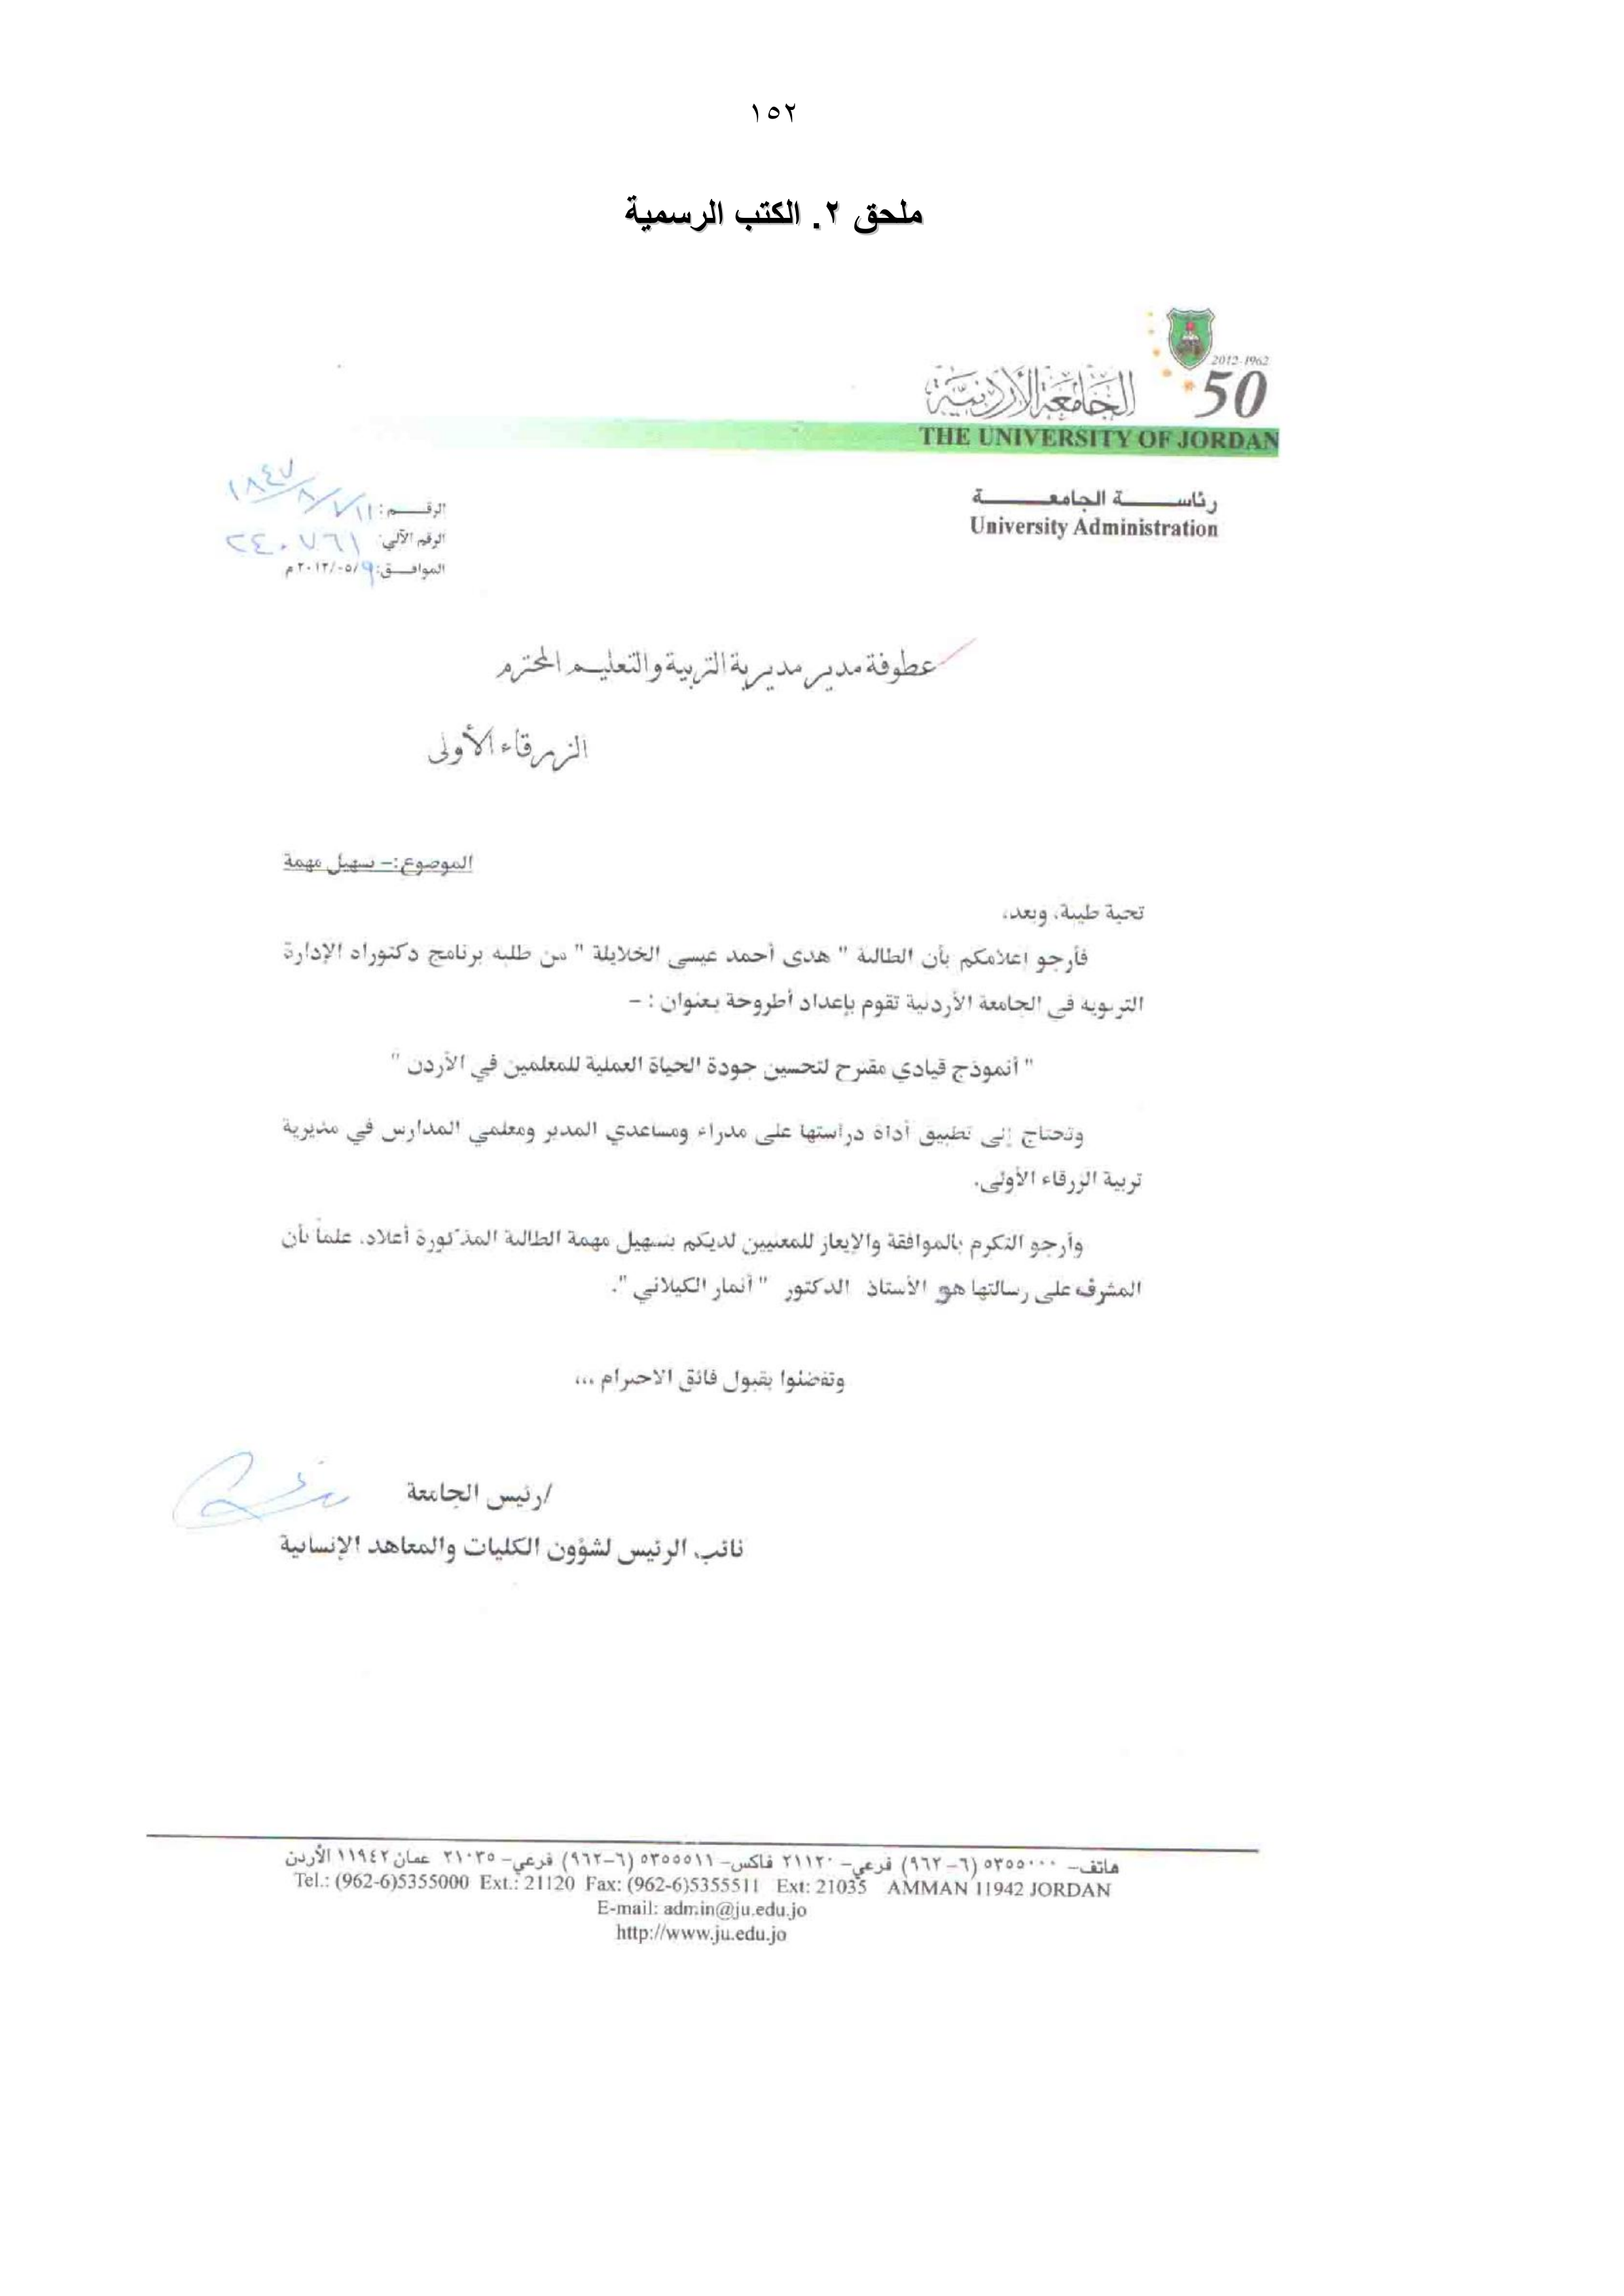 ١٥٢
ملحق ٢. الكتب الرسمية
2012-1962
50
الجامعة الأردنية
THE UNIVERSITY OF JORDAN
رئاســـة الجامعـــة
University Administration
الرقـــم: ١١/٧/٨/١٨٤٧
الرقم الآلي: ٢٤٠٧٦١
الموافـــق: ٩/٠٥/٢٠١٢م
عطوفة مدير مديرية التربية والتعليم المحترم
الزرقاء الأولى
الموضوع:- تسهيل مهمة
تحية طيبة، وبعد،
فأرجو اعلامكم بأن الطالبة " هدى أحمد عيسى الخلايلة " من طلبه برنامج دكتوراه الإدارة
التربويه في الجامعة الأردنية تقوم بإعداد أطروحة بعنوان : -
" أنموذج قيادي مقترح لتحسين جودة الحياة العملية للمعلمين في الأردن "
وتحتاج إلى تطبيق أداة دراستها على مدراء ومساعدي المدير ومعلمي المدارس في مديرية
تربية الزرقاء الأولى.
وأرجو التكرم بالموافقة والإيعاز للمعنيين لديكم بتسهيل مهمة الطالبة المذكورة أعلاه، علماً بأن
المشرف على رسالتها هو الأستاذ الدكتور " أنمار الكيلاني ".
وتفضلوا بقبول فائق الاحترام ،،،
/رئيس الجامعة
نائب الرئيس لشؤون الكليات والمعاهد الإنسانية
هاتف- ٥٣٥٥٠٠٠ (٦-٩٦٢) فرعي- ٢١١٢٠ فاكس- ٥٣٥٥٥١١ (٦-٩٦٢) فرعي- ٢١٠٣٥ عمان ١١٩٤٢ الأردن
Tel.: (962-6)5355000 Ext.: 21120 Fax: (962-6)5355511 Ext: 21035 AMMAN 11942 JORDAN
E-mail: admin@ju.edu.jo
http://www.ju.edu.jo